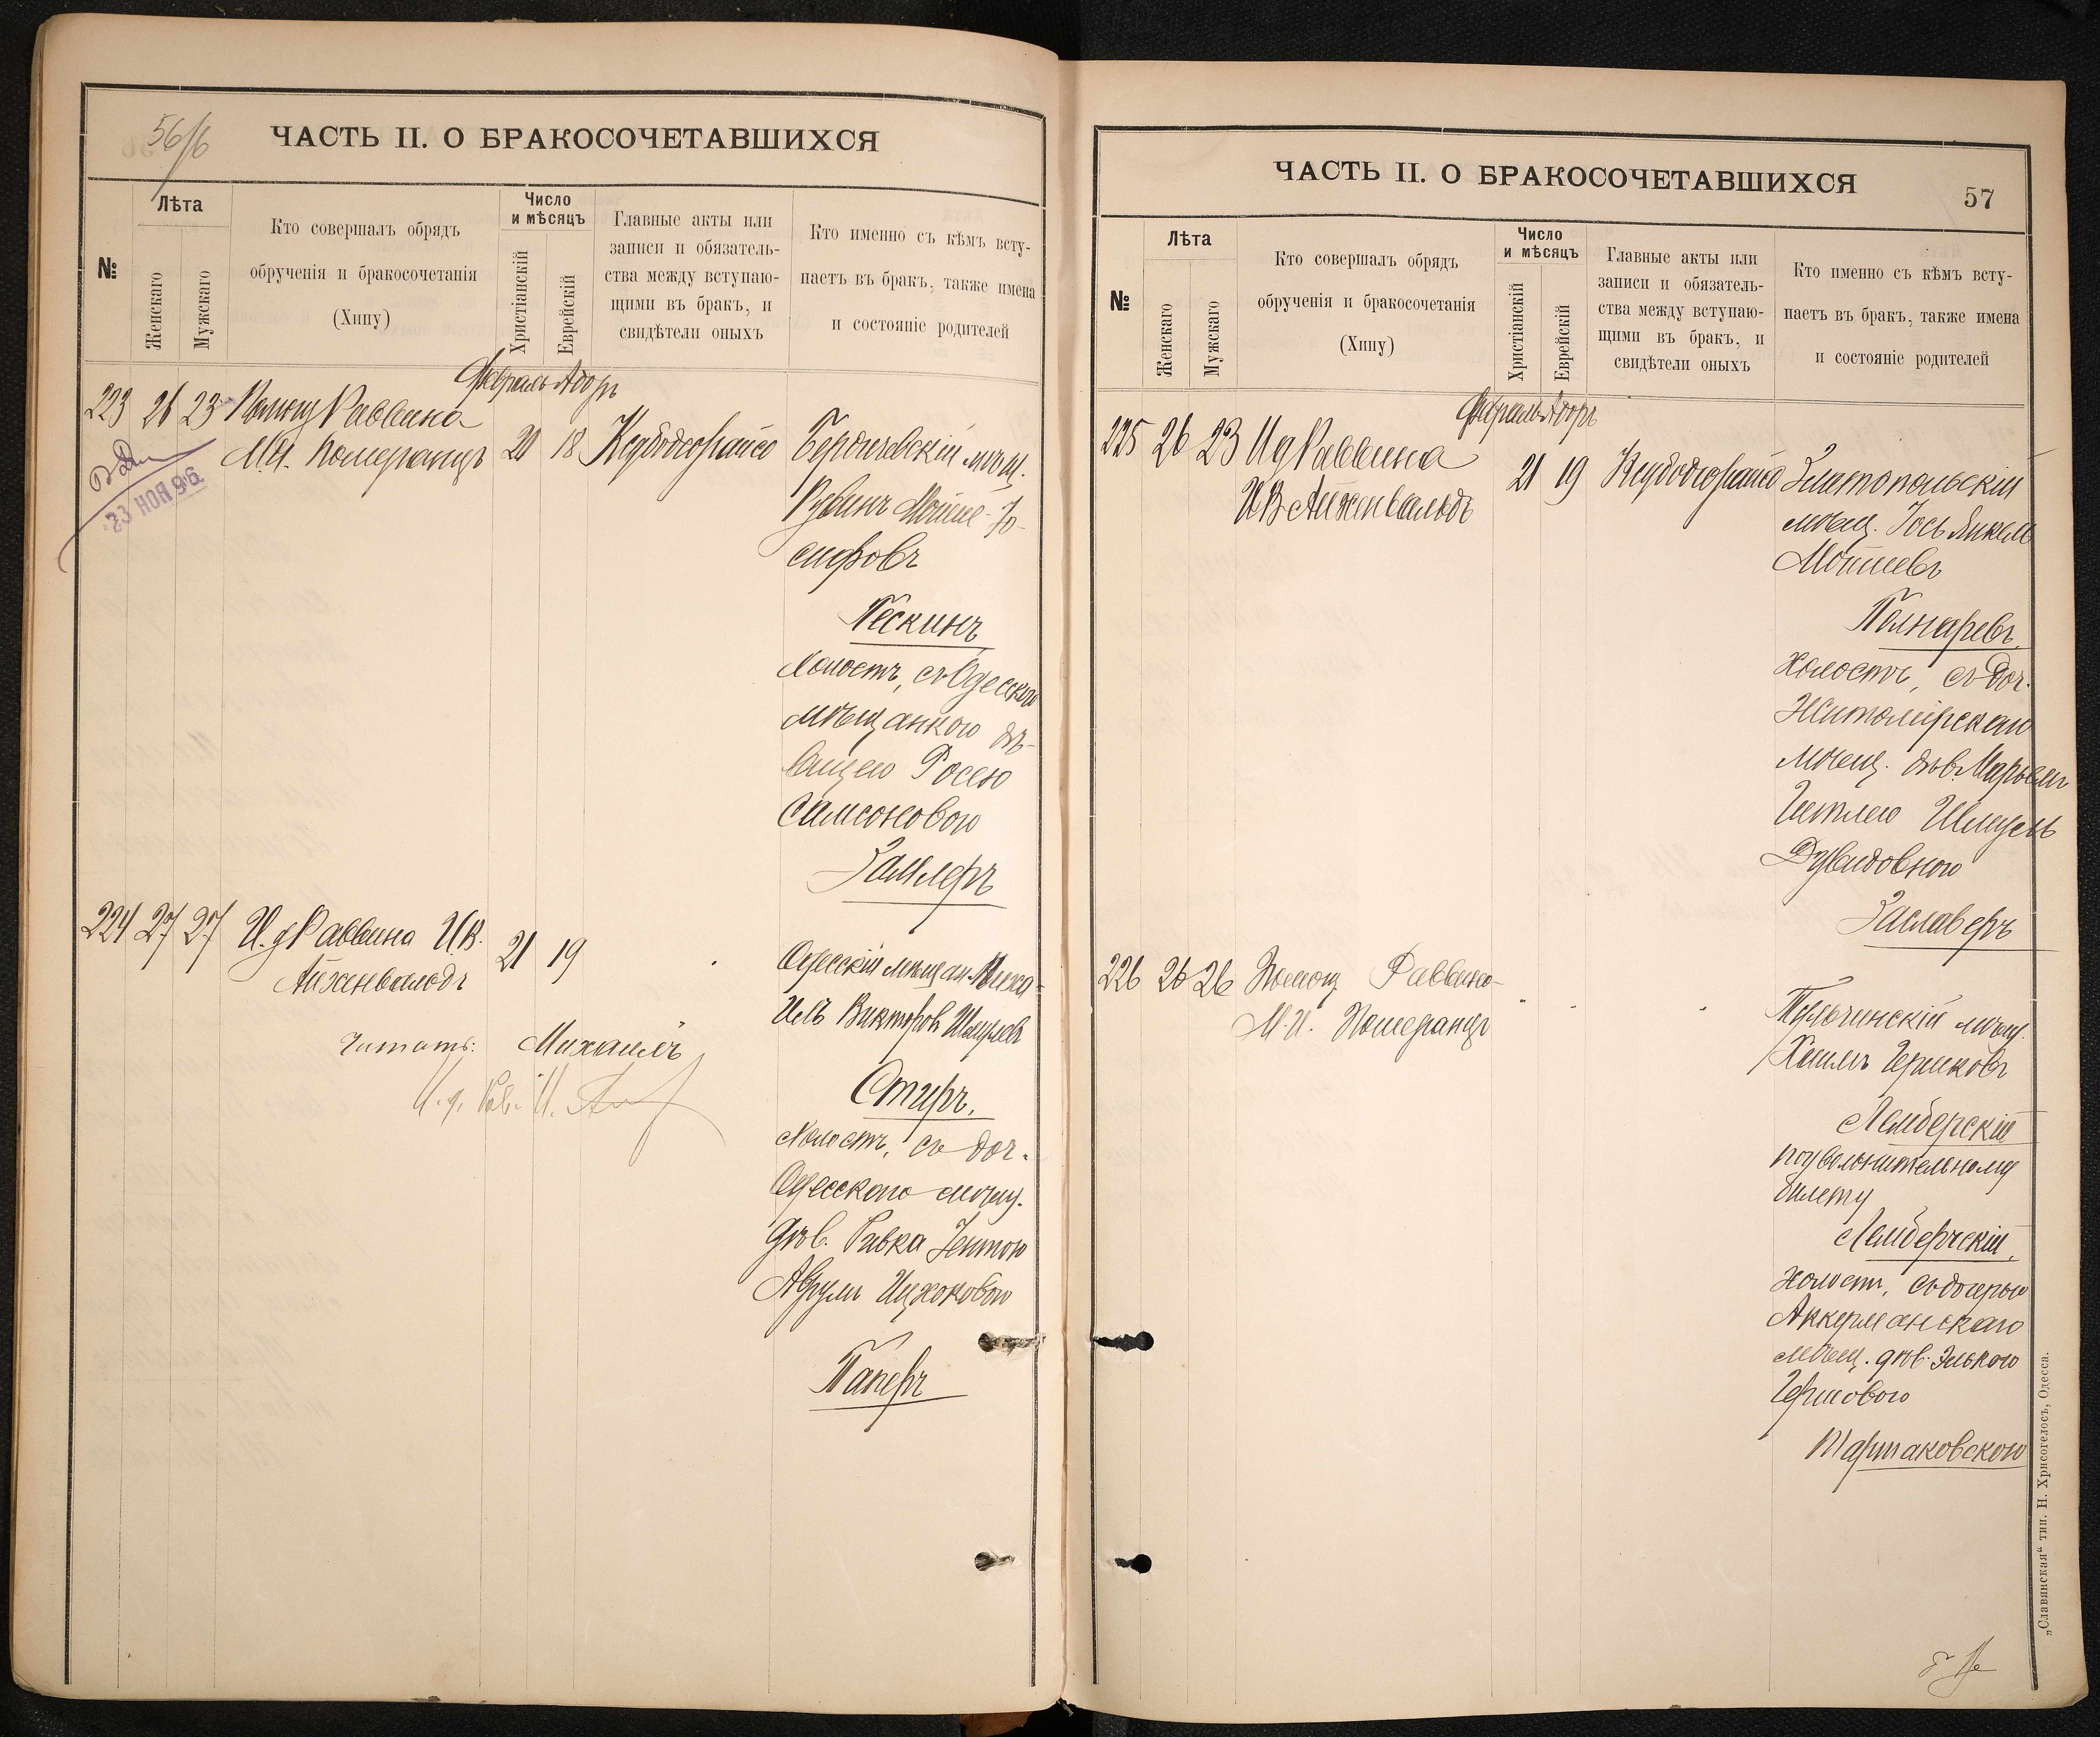 56/б
ЧАСТЬ II. О БРАКОСОЧЕТАВШИХСЯ
№
Лѣта
Женскаго
Мужскаго
Кто совершалъ обрядъ
обрученія и бракосочетанія
(Хипу)
Число
и мѣсяцъ
Христіанскій
Еврейскій
Главные акты или
записи и обязатель-
ства между вступаю-
щими въ бракъ, и
свидѣтели оныхъ
Кто именно съ кѣмъ всту-
паетъ въ бракъ, также имена
и состояніе родителей
Февраль Адоръ
223 26 23 Раввина
М.И. Померанцъ 20 18
23 НОЯ 96
Бердичевскій мѣщ.
Рувинъ Мойше-Іо-
сифовъ
Пескинъ
Холостъ, съ Одесскою
мѣщанкою дѣ-
вицею Росею
Самсоновою
Замлеръ
224 27 27 И. д Раввина И.В.
Айзенвальдъ
21 19
Одесскій мѣщан. Миха-
илъ Викторов
Стиръ.
Холостъ, съ доч.
Одесскаго мѣщ.
дѣв. Ривка Гентою
Аврумъ Ицковою
Паперъ
Читать: Михаилъ
И. д. Рав. И.
ЧАСТЬ II. О БРАКОСОЧЕТАВШИХСЯ
57
№
Лѣта
Женскаго
Мужскаго
Кто совершалъ обрядъ
обрученія и бракосочетанія
(Хипу)
Число
и мѣсяцъ
Христіанскій
Еврейскій
Главные акты или
записи и обязатель-
ства между вступаю-
щими въ бракъ, и
свидѣтели оныхъ
Кто именно съ кѣмъ всту-
паетъ въ бракъ, также имена
и состояніе родителей
Февраль Адоръ
225 26 23 И д Раввина
И В Айзенвальдъ
21 19
Златопольскій
мѣщ. Іось Янкель
Мошевъ
Полнаревъ.
Холостъ, съ доч.
Житомірскаго
мѣщ. дѣв. Марьямъ
Гитлею Шмуель
Дувидовною
Заславеръ
226 26 26 Помощ Раввина
М. И. Померанцъ
Тульчинскій мѣщ.
Хаимъ Гершковъ
Лемберскій
по увольнительному
билету
Лемберчскій.
Холостъ, съ дочерью
Аккерманскаго
мѣщ. дѣв. Элькою
Гершовою
Тартаковскою
„Славянская“ тип. Н. Хрисогелосъ, Одесса.